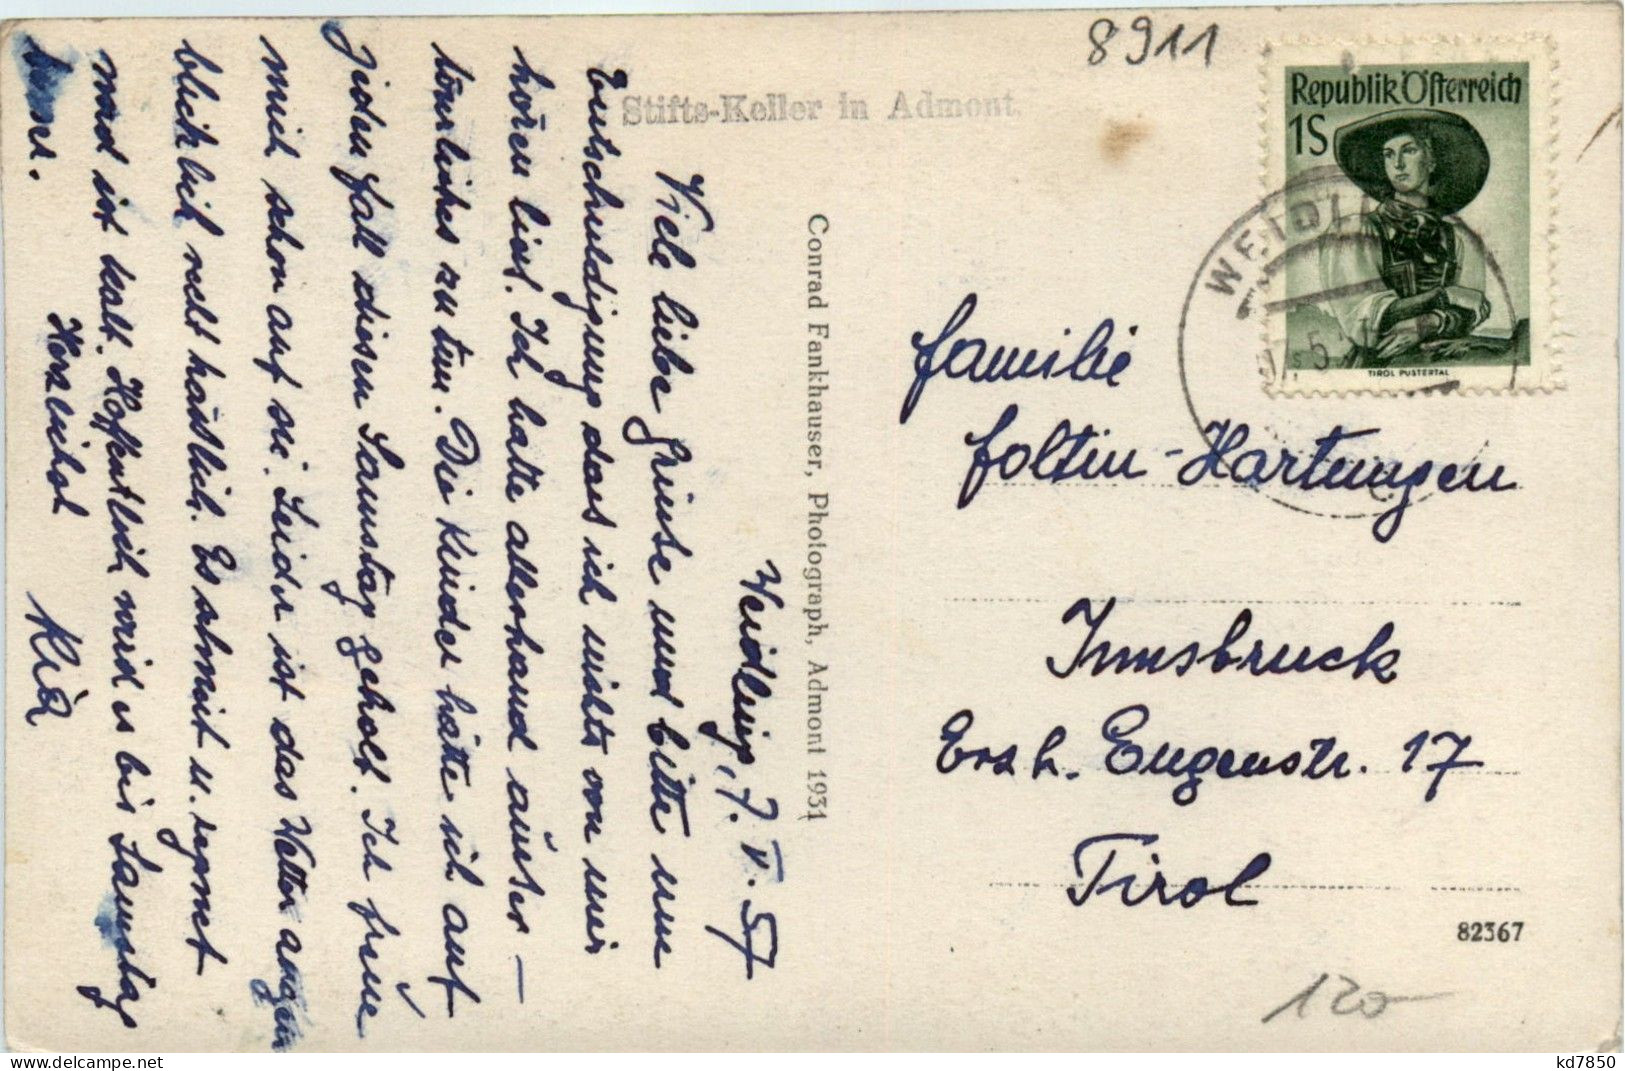 8911
Stifts-Keller in Admont.
Republik Österreich
1S
TIROL PUSTERTAL
WEIDLI
Weidling, 7. V. 57
Viele liebe Grüsse und bitte um
Entschuldigung dass ich nichts von mir
hören liess. Ich hatte allerhand ausser-
törliches zu tun. Die Kinder hätte ich auf
jeden Fall diesen Samstag geholt. Ich freue
mich schon auf sie. Leider ist das Wetter augen
blicklich recht hässlich. Es schneit u. regnet
und ist kalt. Hoffentlich wird es bis Samstag
bess.
Herzlichst
Conrad Fankhauser, Photograph, Admont 1931
Familie
Foltin-Hartungen
Innsbruck
Erzh. Eugenstr. 17
Tirol
82367
120-
delcampe.net
kd7850